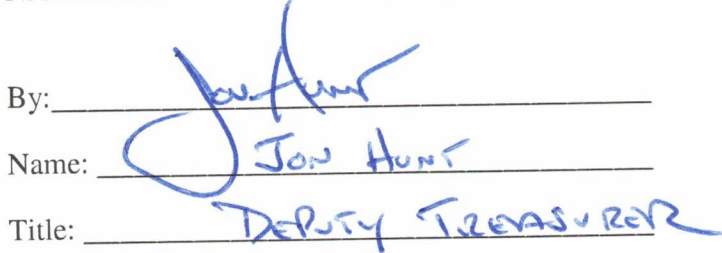 By: Jon Hunt
Name: Jon Hunt
Title: Deputy Treasurer